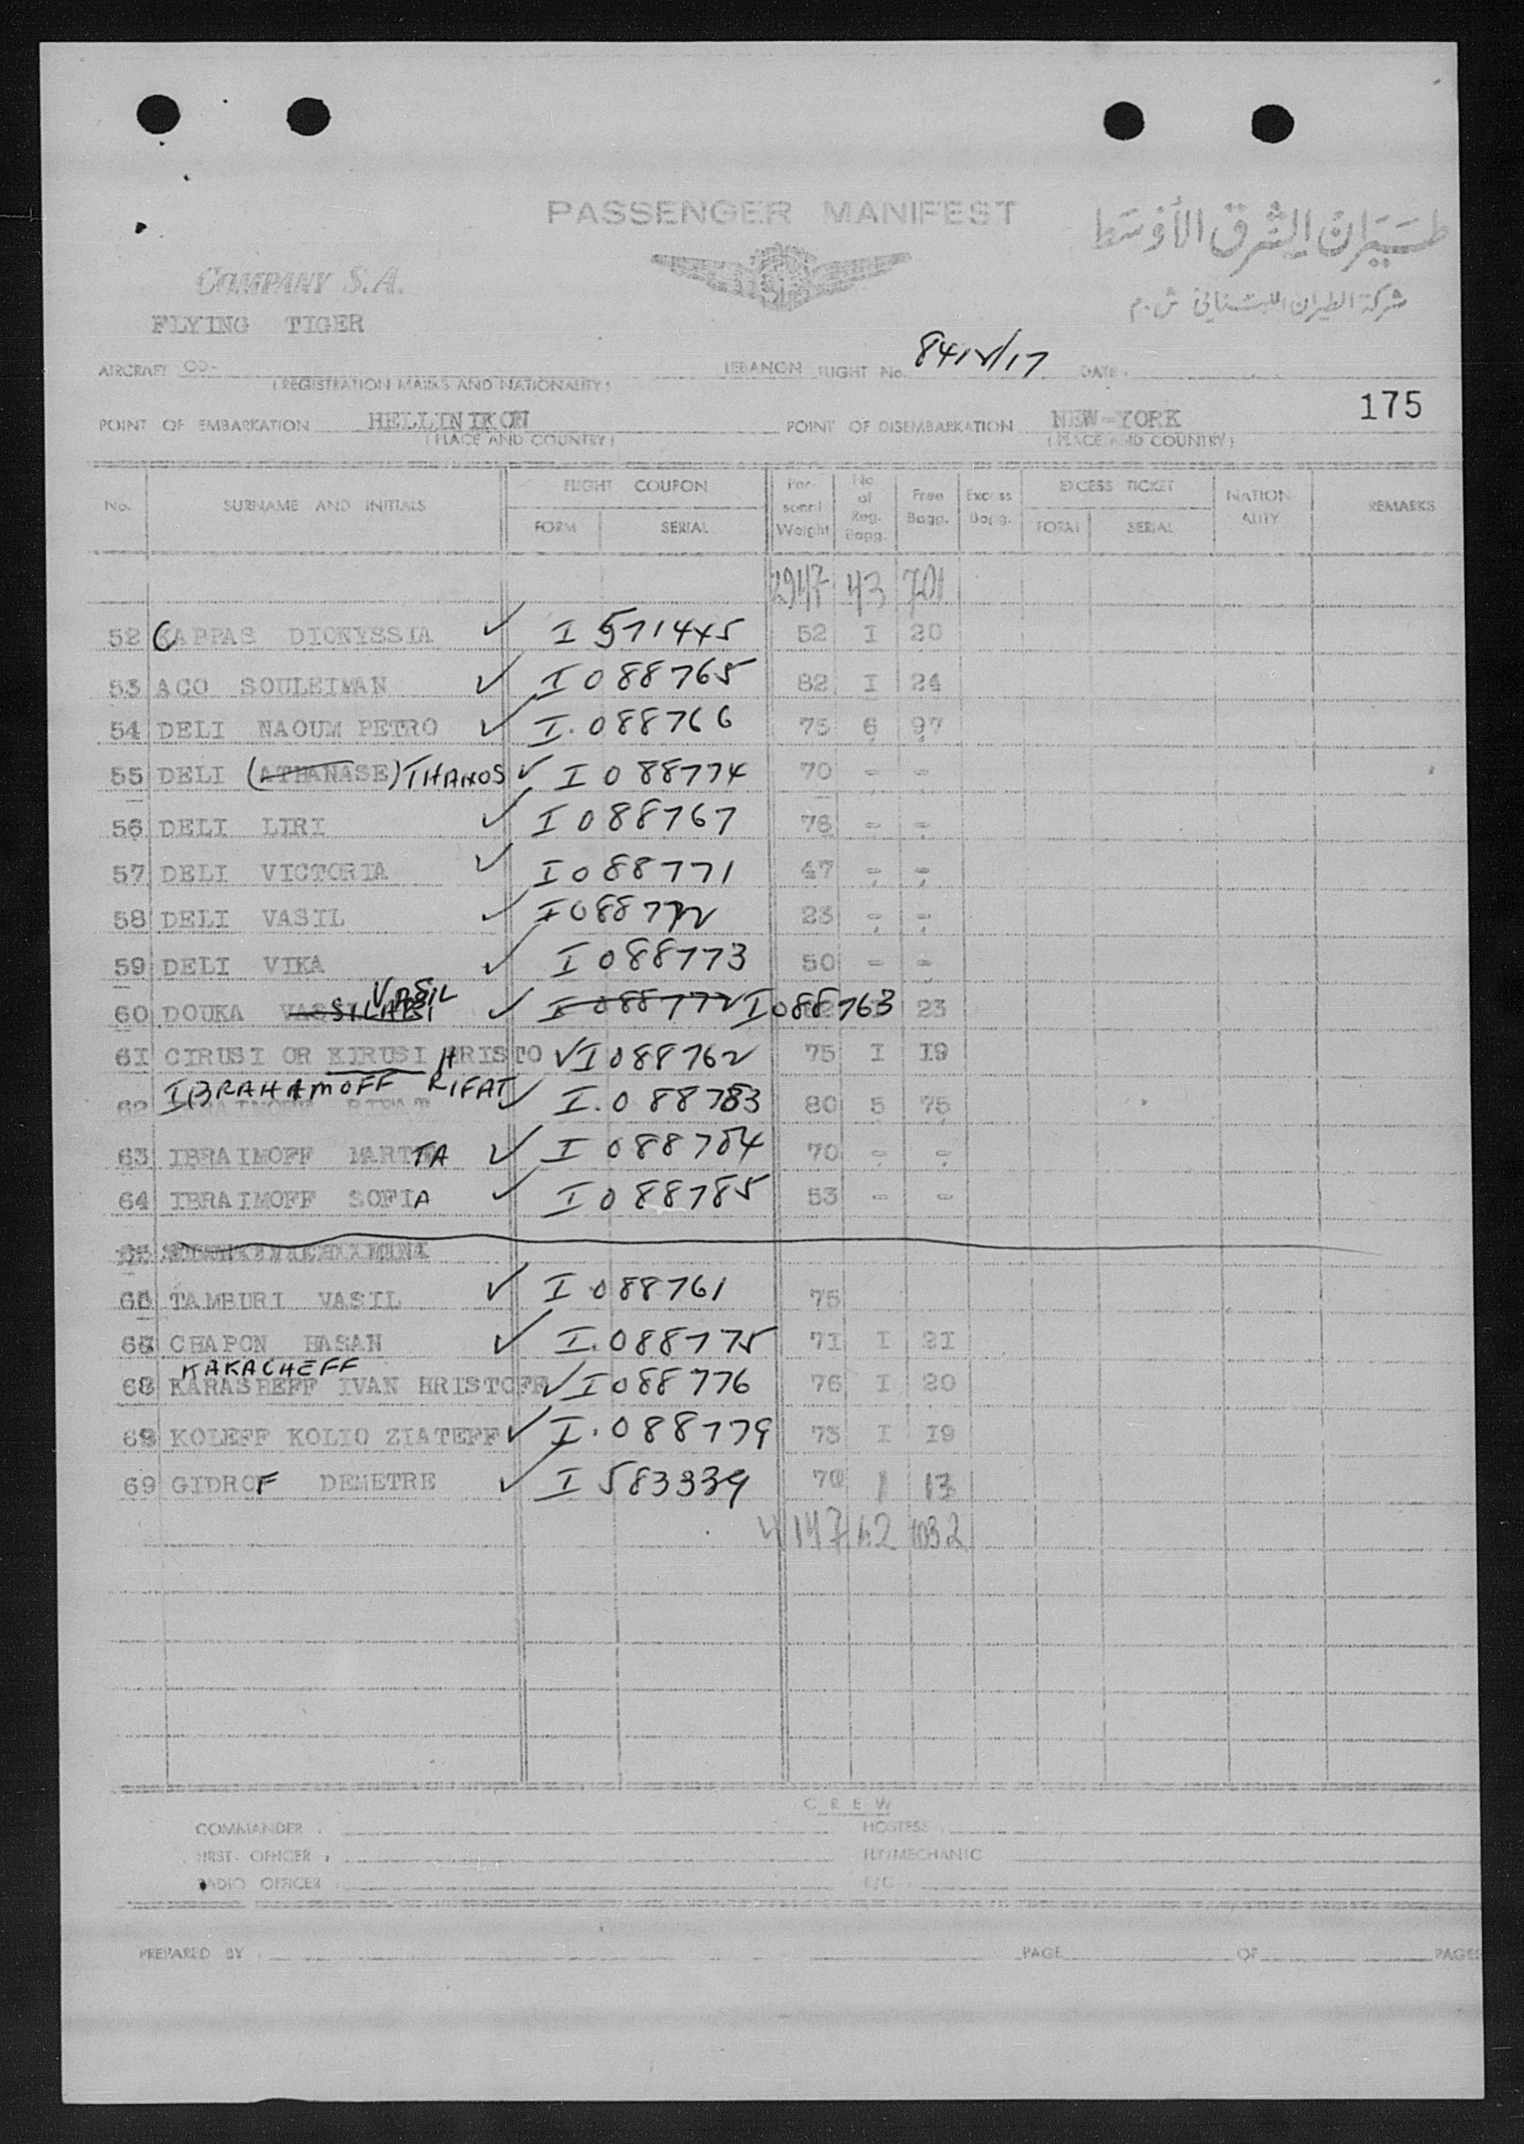 PASSENGER MANIFEST
طيران الشرق الأوسط
شركة الطيران اللبنانية ش.م
COMPANY S.A.
FLYING TIGER
AIRCRAFT OD- LEBANON FLIGHT No. DATE
(REGISTRATION MARKS AND NATIONALITY)
175
POINT OF EMBARKATION HELLINIKON POINT OF DISEMBARKATION NEW-YORK
(PLACE AND COUNTRY) (PLACE AND COUNTRY)
No. SURNAME AND INITIALS FLIGHT COUPON FORM SERIAL Per-sonnl Weight No of Reg. Bagg. Free Bagg. Excess Bagg. EXCESS TICKET FORM SERIAL NATIONALITY REMARKS
2947 43 701
52 CAPPAS DIONYSSIA ✓ I 571445 52 I 20
53 ACO SOULEIMAN ✓ I 088765 82 I 24
54 DELI NAOUM PETRO ✓ I.088766 75 6 97
55 DELI (ATHANASE) THANOS ✓ I 088774 70 - -
56 DELI LIRI ✓ I 088767 76 - -
57 DELI VICTORIA ✓ I 088771 47 - -
58 DELI VASIL ✓ I 088772 23 - -
59 DELI VIKA ✓ I 088773 50 - -
VASIL
60 DOUKA ✓ I 088772 I 088763 23
61 CIRUSI OR KIRUSI HRISTO ✓ I 088762 75 I 19
IBRAHAMOFF RIFAT
62 ✓ I.088783 80 5 75
63 IBRAIMOFF MARTTA ✓ I 088784 70 - -
64 IBRAIMOFF SOFIA ✓ I 088785 53 - -
65 TAMBURI VASIL ✓ I 088761 75
66 CHAPON HASAN ✓ I.088775 71 I 21
KAKACHEFF
KARASHEFF IVAN HRISTOFF ✓ I 088776 76 I 20
68 KOLEFF KOLIO ZIATEFF ✓ I.088779 73 I 19
69 GIDROF DEMETRE ✓ I 583339 70 1 13
4147 62 1032
CREW
COMMANDER : HOSTESS :
FIRST OFFICER : FLY/MECHANIC
RADIO OFFICER :
PREPARED BY : PAGE OF PAGES